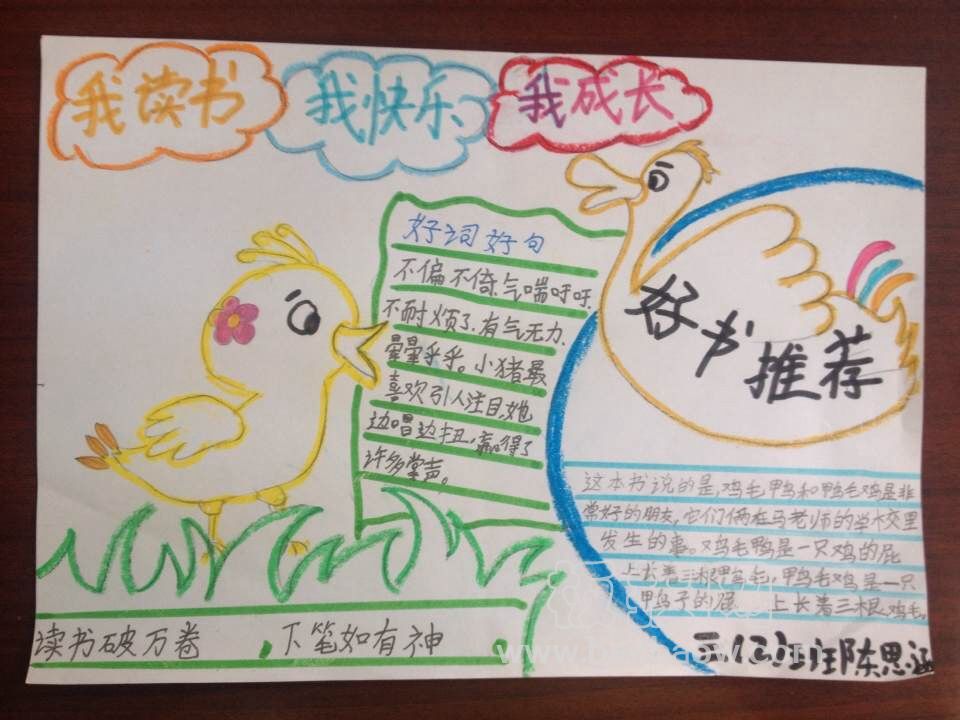 我读书 我快乐 我成长
好词好句
不偏不倚.气喘吁吁.
不耐烦了.有气无力.
晕晕乎乎。小猪最
喜欢引人注目,她
边唱边扭,赢得了
许多掌声。
好书推荐
这本书说的是,鸡毛鸭和鸭毛鸡是非
常好的朋友,它们俩在马老师的学校里
发生的事。鸡毛鸭是一只鸡的屁
上长着三根鸭毛,鸭毛鸡是一只
鸭子的屁 上长着三根鸡毛
读书破万卷,下笔如有神
三(2)班陈思涵